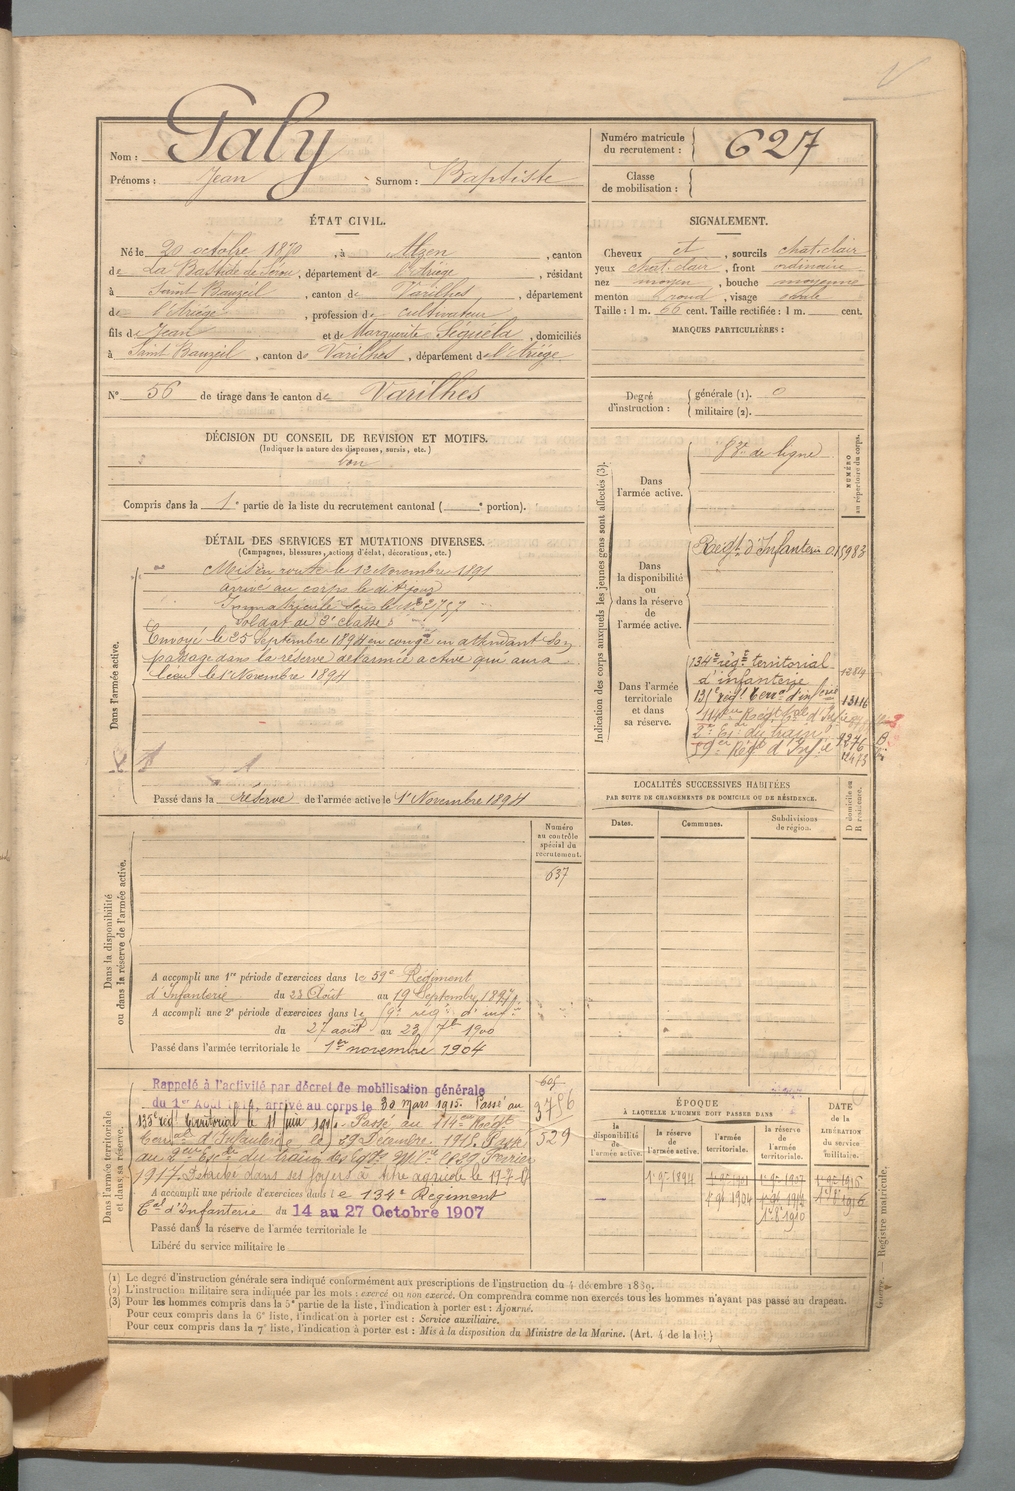 Nom : Galy
Prénoms : Jean Surnom : Baptiste
Numéro matricule du recrutement : 627
Classe de mobilisation :
ÉTAT CIVIL.
Né le 20 octobre 1870, à Alzen, canton
de La Bastide de Sérou, département de l'Ariège, résidant
à Saint Bauzeil, canton de Varilhes, département
de l'Ariège, profession de cultivateur
fils de Jean et de Marguerite Séguéla, domiciliés
à Saint Bauzeil, canton de Varilhes, département de l'Ariège
SIGNALEMENT.
Cheveux et, sourcils chat. clair
yeux chat. clair, front ordinaire
nez moyen, bouche moyenne
menton rond, visage
Taille : 1 m. 66 cent. Taille rectifiée : 1 m. cent.
MARQUES PARTICULIÈRES :
N° 56 de tirage dans le canton de Varilhes
Degré d'instruction : générale (1). 0
militaire (2).
DÉCISION DU CONSEIL DE REVISION ET MOTIFS.
(Indiquer la nature des dispenses, sursis, etc.)
bon
Compris dans la 1e partie de la liste du recrutement cantonal ( e portion).
DÉTAIL DES SERVICES ET MUTATIONS DIVERSES.
(Campagnes, blessures, actions d'éclat, décorations, etc.)
Dans l'armée active.
Mis en route le 12 Novembre 1891
arrivé au corps le dit jour
Immatriculé sous le N°
Soldat de 2e classe
Envoyé le 25 Septembre 1894 en congé en attendant son
passage dans la réserve de l'armée active qui aura
lieu le 1er Novembre 1894
Passé dans la réserve de l'armée active le 1er Novembre 1894
Indication des corps auxquels les jeunes gens sont affectés (3).
NUMÉRO au répertoire du corps.
Dans l'armée active. de ligne
Dans la disponibilité ou dans la réserve de l'armée active.
Régt d'Infanterie 015983
Dans l'armée territoriale et dans sa réserve.
134e régt territorial
d'infanterie
13116
9276
LOCALITÉS SUCCESSIVES HABITÉES
PAR SUITE DE CHANGEMENTS DE DOMICILE OU DE RÉSIDENCE.
Dates. Communes. Subdivisions de région.
D domicile ou R résidence.
Dans la disponibilité ou dans la réserve de l'armée active.
Numéro au contrôle spécial du recrutement.
637
A accompli une 1re période d'exercices dans le 59e Régiment
d'Infanterie du 23 Août au 19 Septembre 1897
A accompli une 2e période d'exercices dans le régt d'inf
du 27 août au 23 7bre 1900
Passé dans l'armée territoriale le 1er novembre 1904
Dans l'armée territoriale et dans sa réserve.
Rappelé à l'activité par décret de mobilisation générale
du 1er Août 1914, arrivé au corps le 30 mars 1915. Passé au
135e régt territorial le 11 juin 1915. Passé au 114e Régt
Terral d'Infanterie le 29 Décembre 1915. Passé
au 2e Escon du train le 9 Février
1917. Détaché dans ses foyers à titre agricole le
A accompli une période d'exercices dans le 134e Régiment
Tal d'Infanterie du 14 au 27 Octobre 1907
Passé dans la réserve de l'armée territoriale le
Libéré du service militaire le
3756
529
ÉPOQUE
À LAQUELLE L'HOMME DOIT PASSER DANS
DATE de la LIBÉRATION du service militaire.
la disponibilité de l'armée active.
la réserve de l'armée active.
l'armée territoriale.
la réserve de l'armée territoriale.
1er 9bre 1894
1er 9bre 1904
(1) Le degré d'instruction générale sera indiqué conformément aux prescriptions de l'instruction du 4 décembre 1889.
(2) L'instruction militaire sera indiquée par les mots : exercé ou non exercé. On comprendra comme non exercés tous les hommes n'ayant pas passé au drapeau.
(3) Pour les hommes compris dans la 5e partie de la liste, l'indication à porter est : Ajourné.
Pour ceux compris dans la 6e liste, l'indication à porter est : Service auxiliaire.
Pour ceux compris dans la 7e liste, l'indication à porter est : Mis à la disposition du Ministre de la Marine. (Art. 4 de la loi.)
Guerre. — Registre matricule.